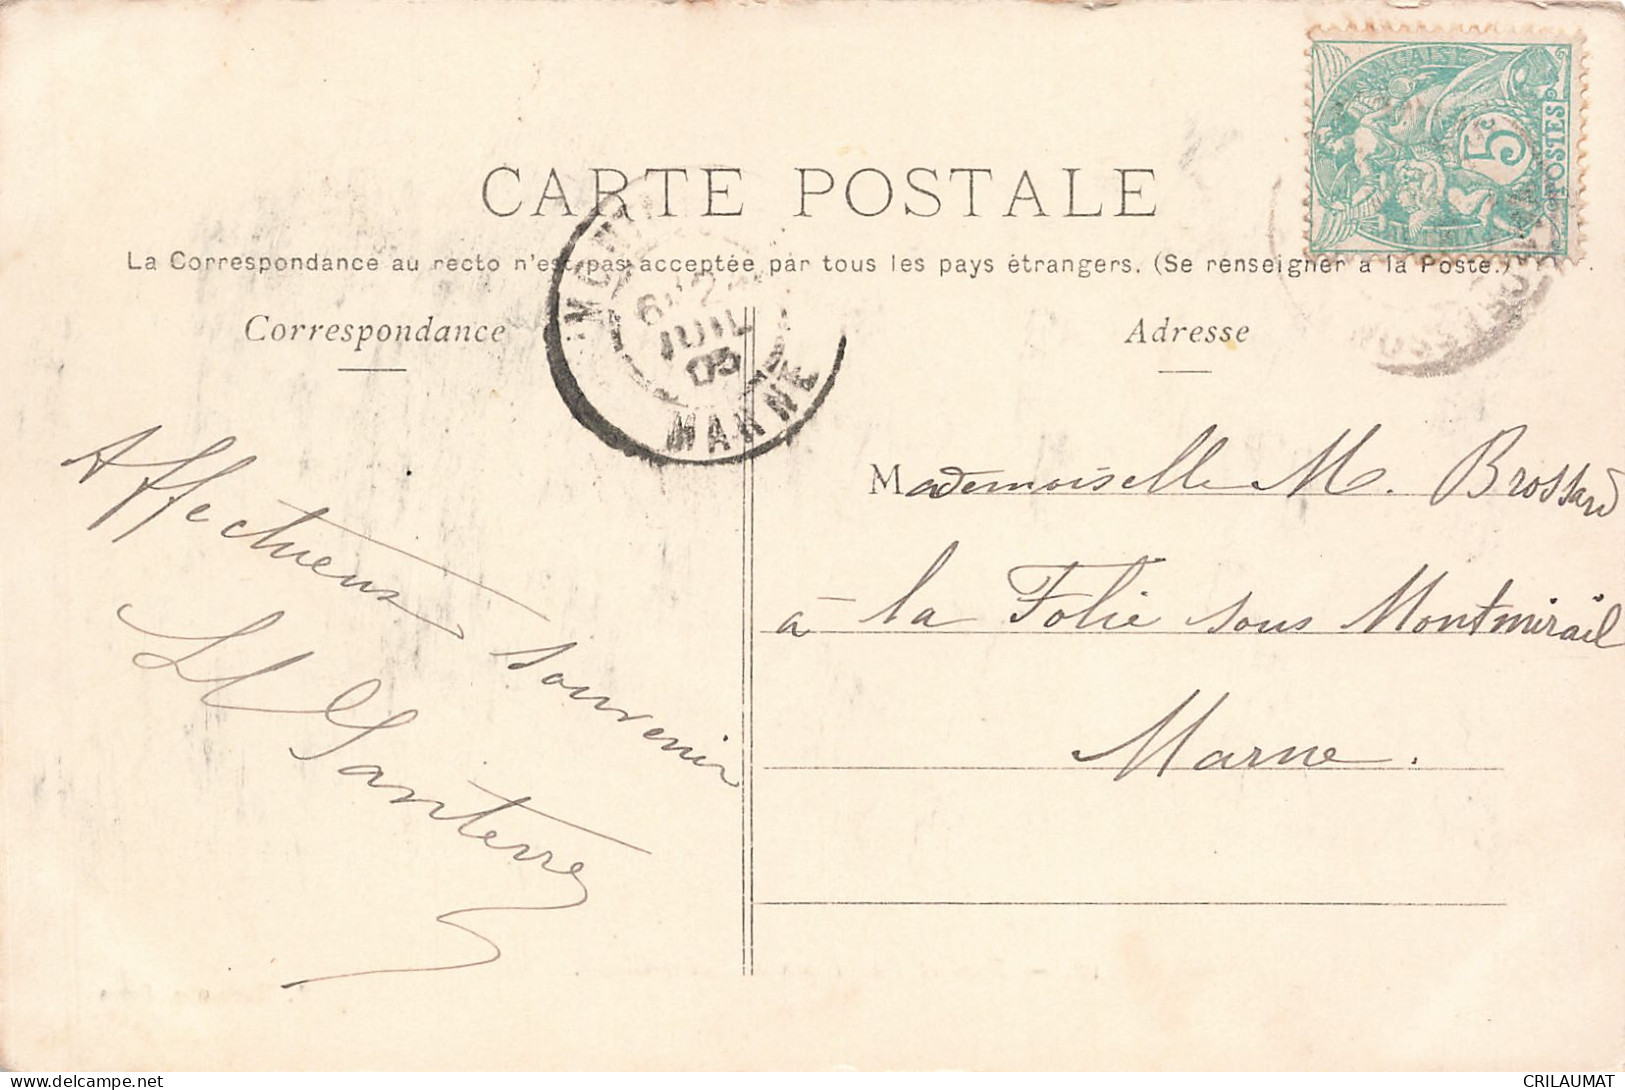 CARTE POSTALE
La Correspondance au recto n'est pas acceptée par tous les pays étrangers. (Se renseigner à la Poste.)
Correspondance
Adresse
5c
POSTES
JUIL
05
MARNE
Affectueux souvenir
Santerre
Mademoiselle M. Brossard
à la Folie sous Montmirail
Marne.
CRILAUMAT